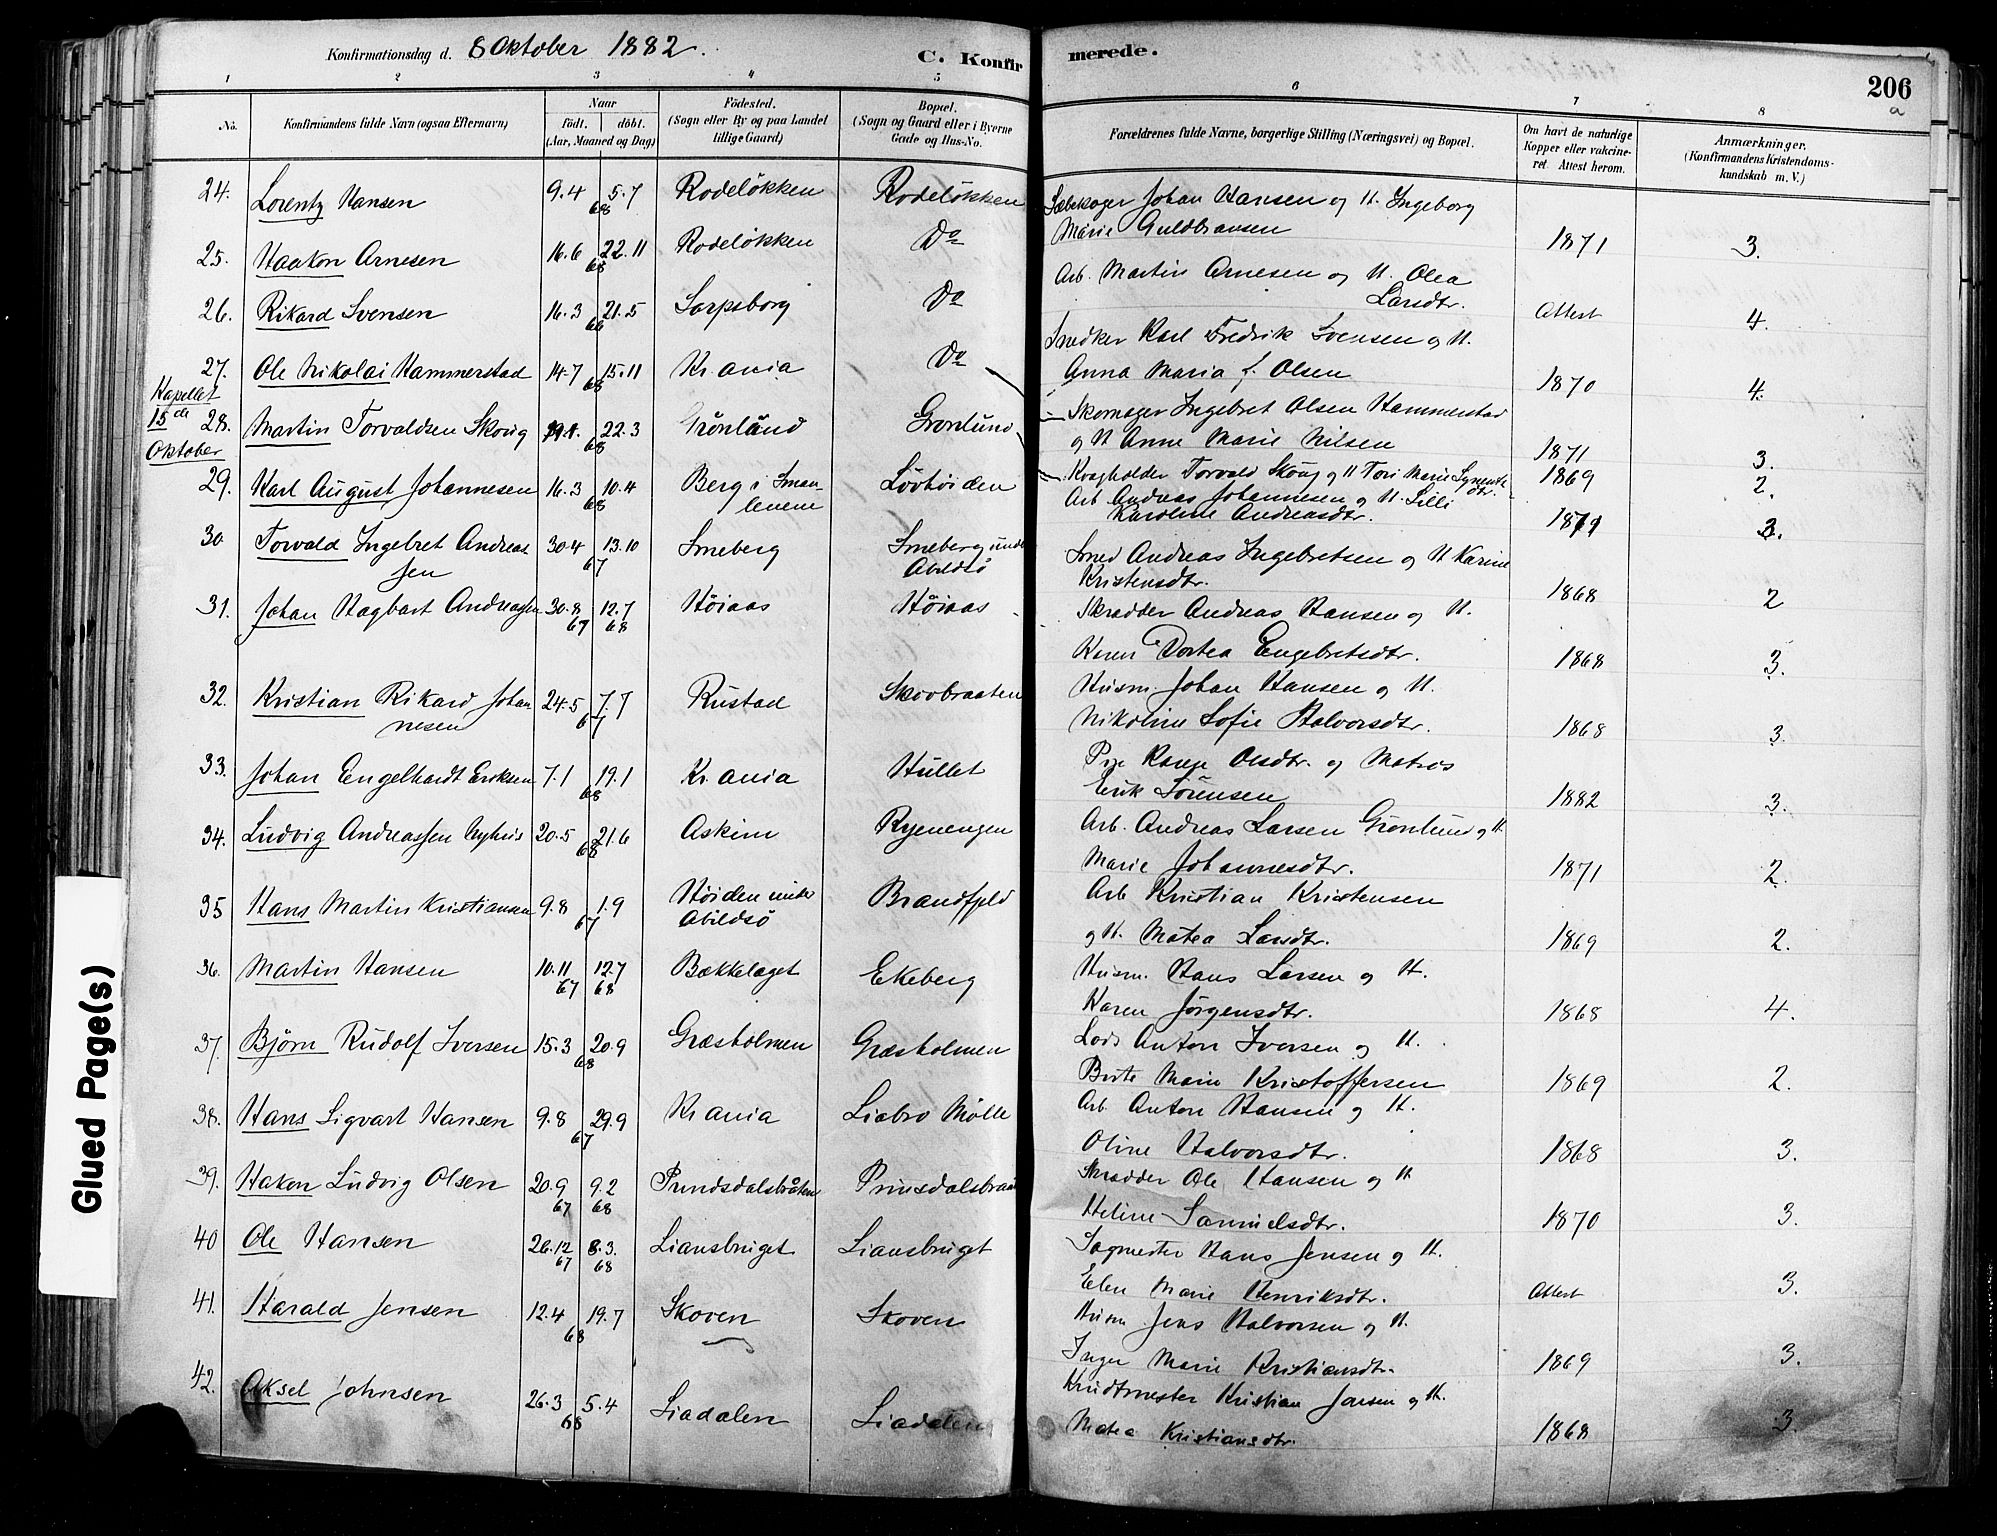 Konfirmationsdag d. 8 Oktober 1882.
C. Konfirmerede.
206
a
1 2 3 4 5 6 7 8
No.
Konfirmandens fulde Navn (ogsaa Efternavn)
Naar
födt. döbt.
(Aar, Maaned og Dag)
Födested.
(Sogn eller By og paa Landet
tillige Gaard)
Bopæl.
(Sogn og Gaard eller i Byerne
Gade og Hus-No.
Forældrenes fulde Navne, borgerlige Stilling (Næringsvei) og Bopæl.
Om havt de naturlige
Kopper eller vakcine-
ret. Attest herom.
Anmærkninger.
(Konfirmandens Kristendoms-
kundskab m. V.)
24. Lorentz Hansen 9.4 5.7 68 Rodelökken Rodelökken
Johan Hansen og H. Ingeborg
Marie Guldbransen 1871 3.
25. Haakon Arnesen 16.6 22.11 68 Rodelökken Do
Arb. Martin Arnesen og H. Olea
Larsdtr. Attest 4.
26. Rikard Svensen 16.3 21.5 66 Sarpsborg Do
Snedker Karl Fredrik Svensen og H.
Anna Maria f. Olsen 1870 4.
27. Ole Nikolai Hammerstad 14.7 15.11 68 Kr.ania Do
Skomager Ingebret Olsen Hammerstad
og H Anne Marie Nilsen 1871 3.
Kapellet
15de
Oktober
28. Martin Torvaldsen Skoug 22.3 68 Grönland Grönlund
Torvald Skoug og H Tori Marie 1869 2.
29. Karl August Johannesen 16.3 10.4 68 Berg i Smaa-
lenene Lövhöiden
Arb Andreas Johannesen og H. Lilli
Karoline Andreasdtr. 1871 3.
30 Torvald Ingebret Andreas
sen 30.4 13.10 67 Smeberg Smeberg under
Abildsö
Smed Andreas Ingebretsen og H Karine
Kristensdtr. 1868 2
31. Johan Hagbart Andreassen 30.8 67 12.7 68 Höiaas Höiaas
Skrædder Andreas Hansen og H.
Karen Dortea Engebretsdtr. 1868 3.
32. Kristian Rikard Johan
nesen 24.5 7.7 67 Rustad Skovbraaten
Husm. Johan Hansen og H.
Nikoline Sofie Halvorsdtr. 1868 3.
33. Johan Engelhardt Eriksen 7.1 19.1 68 Kr.ania Hullet
Olsdtr. og Matros
Erik Sörensen 1882 3.
34. Ludvig Andreassen 20.5 21.6 68 Askim Ryenengen
Arb. Andreas Larsen Grönlund og H.
Marie Johannesdtr. 1871 2.
35 Hans Martin Kristiansen 9.8 1.9 67 Höiden under
Abildsö Brandfjeld
Arb Kristian Kristensen
og H. Matea Larsdtr. 1869 2.
36. Martin Hansen 10.11 67 12.7 68 Bækkelaget Ekeberg
Husm. Hans Larsen og H.
Karen Jörgensdtr. 1868 4.
37. Björn Rudolf Iversen 15.3 20.9 68 Græsholmen Græsholmen
Lods Anton Iversen og H.
Berte Marie Kristoffersen 1869 2.
38. Hans Sigvart Hansen 9.8 29.9 67 Kr.ania Liabro Mölle
Arb. Anton Hansen og H.
Oline Halvorsdtr. 1868 3.
39. Hakon Ludvig Olsen 20.9 67 9.2 68 Prindsdalsbråten Prinsdalsbraaten
Skrædder Ole Hansen og H
Heline Samuelsdtr. 1870 3.
40 Ole Hansen 26.12 67 8.3. 68 Liansbruget Liansbruget
Sagmester Hans Jensen og H.
Elen Marie Henriksdtr. Attest 3.
41. Harald Jensen 12.4 19.7 68 Skoven Skoven
Husm Jens Halvorsen og H.
Inger Marie Kristiansdtr. 1869 3.
42. Aksel Johnsen 26.3 5.4 68 Liadalen Liadalen
Krudtmester Kristian Jonsen og H.
Matea Kristiansdtr. 1868 3
Glued Page(s)